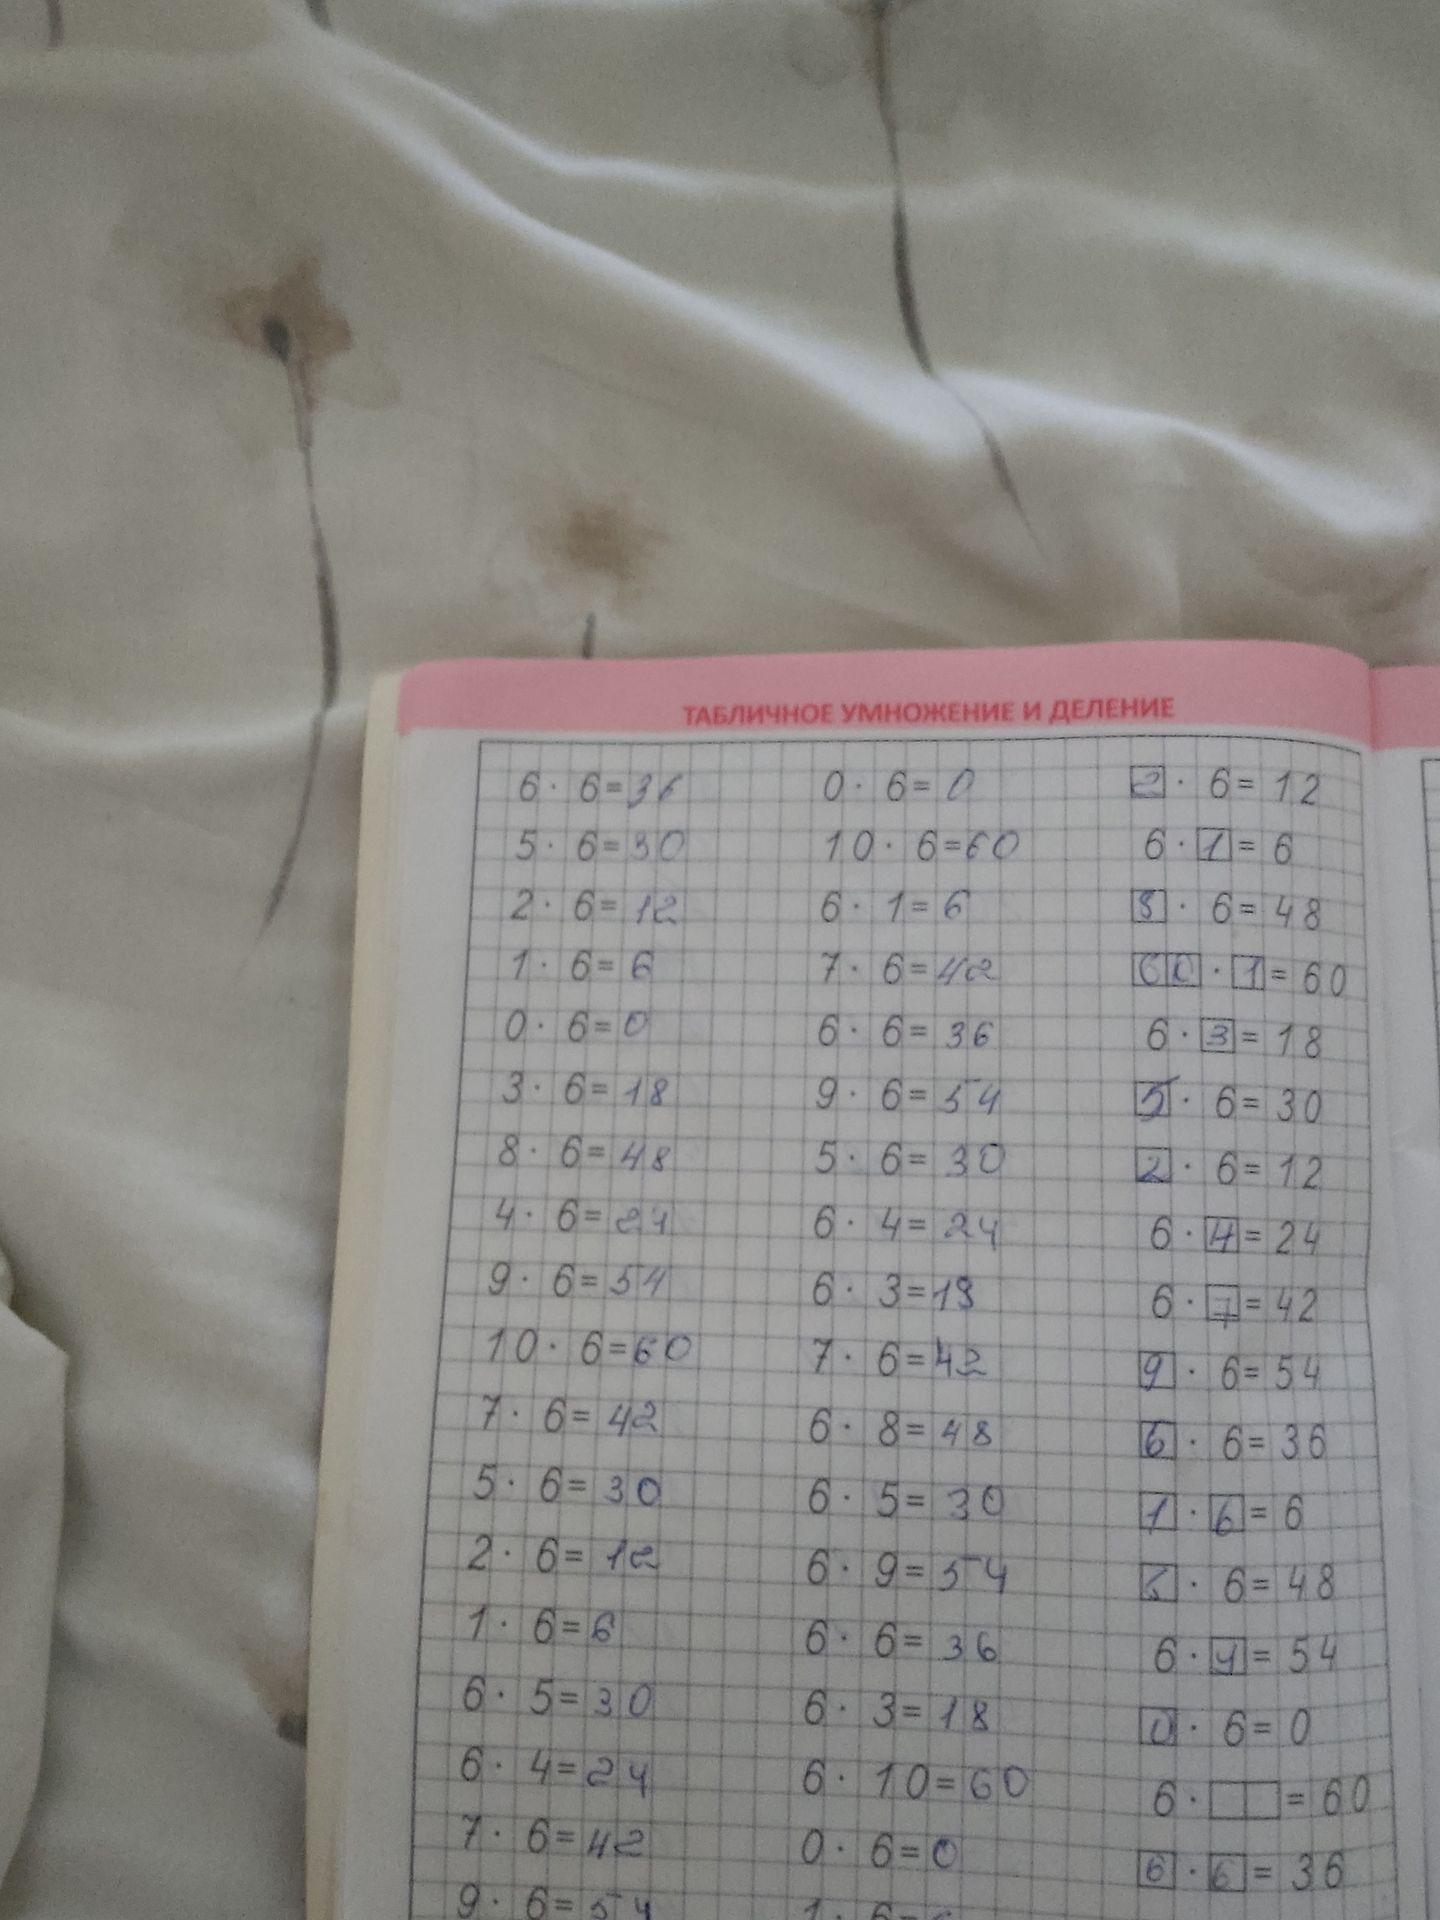 ТАБЛИЧНОЕ УМНОЖЕНИЕ И ДЕЛЕНИЕ
6 · 6 = 36
5 · 6 = 30
2 · 6 = 12
1 · 6 = 6
0 · 6 = 0
3 · 6 = 18
8 · 6 = 48
4 · 6 = 24
9 · 6 = 54
10 · 6 = 60
7 · 6 = 42
5 · 6 = 30
2 · 6 = 12
1 · 6 = 6
6 · 5 = 30
6 · 4 = 24
7 · 6 = 42
9 · 6 = 54
0 · 6 = 0
10 · 6 = 60
6 · 1 = 6
7 · 6 = 42
6 · 6 = 36
9 · 6 = 54
5 · 6 = 30
6 · 4 = 24
6 · 3 = 18
7 · 6 = 42
6 · 8 = 48
6 · 5 = 30
6 · 9 = 54
6 · 6 = 36
6 · 3 = 18
6 · 10 = 60
0 · 6 = 0
1 · 6 =
2 · 6 = 12
6 · 1 = 6
8 · 6 = 48
60 · 1 = 60
6 · 3 = 18
5 · 6 = 30
2 · 6 = 12
6 · 4 = 24
6 · 7 = 42
9 · 6 = 54
6 · 6 = 36
1 · 6 = 6
· 6 = 48
6 · 9 = 54
0 · 6 = 0
6 · = 60
6 · 6 = 36